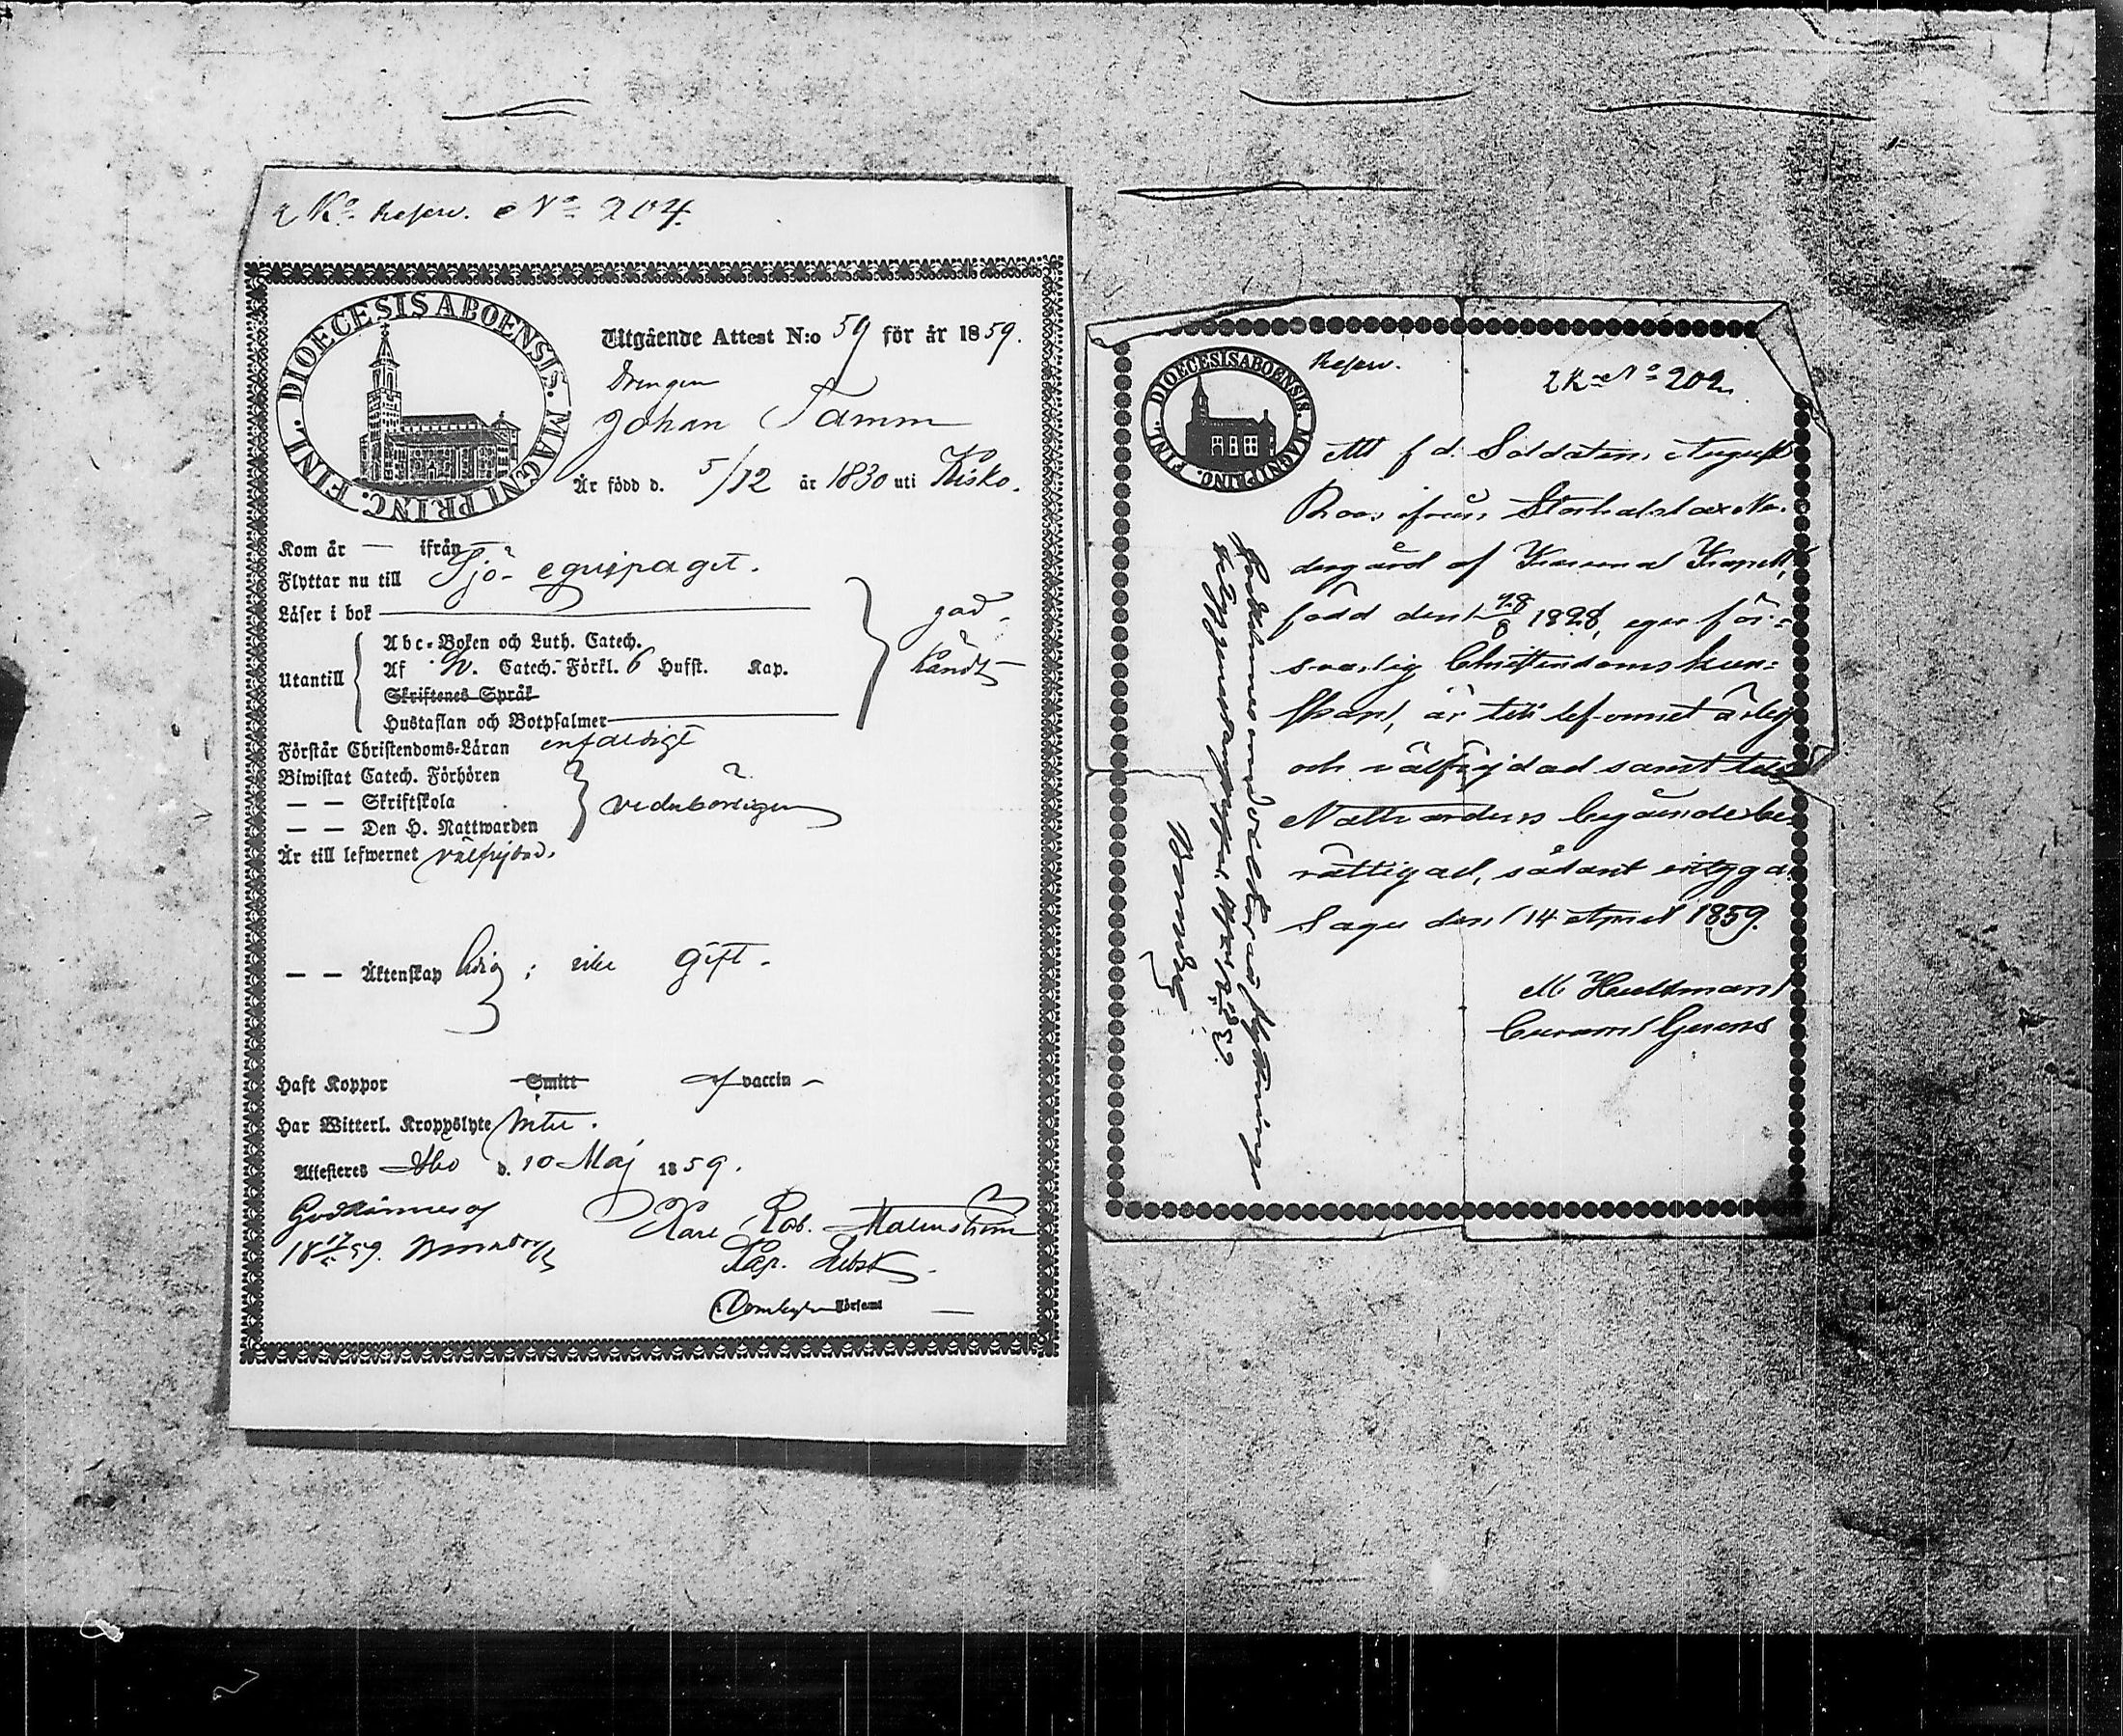 2 Ko. Reserv. No 204.
DIOECESIS ABOENSIS. MAGNI PRINC. FINL.
Utgående Attest N:o 59 för år 1859.
Drengen
Johan Tamm
Är född d. 5/12 år 1830 uti Kisko.
Kom år — ifrån —
Flyttar nu till Sjö-equipaget.
Läser i bok
god-
känd
Utantill
Abc-Boken och Luth. Catech.
Af Catech. Förkl. 6 Hufst. Kap.
Skriftenes Språk
Hustaflan och Botpsalmer
Förstår Christendoms-Läran enfaldigt
Biwistat Catech. Förhören
— — Skriftskola
— — Den H. Nattwarden
vederbörligen
Är till lefwernet välfrejdad.
— — Äktenskap ledig; icke gift.
Haft Koppor Smitt af vaccin
Har Witterl. Kroppslyte Intet.
Attesteres Åbo d. 10 Maj 1859.
Godkännes af
Karl Rob. Malmström
Kap.
Församl
DIOECESIS ABOENSIS. MAGNI PRINC. FINL.
Reserv.
2 K No 202.
Att f d. Soldaten August
Roos ifrån
dergård af Karuna Kapell,
född den 28/8 1828, eger för-
svarlig Christendoms kun-
skap, är till lefvernet ärlig
och välfrejdad samt till
Nattvardens begående be-
rättigad, sådant intygar
Sagu den 14 April 1859.
M. Hultman
Curam Gerens
Godkännes med